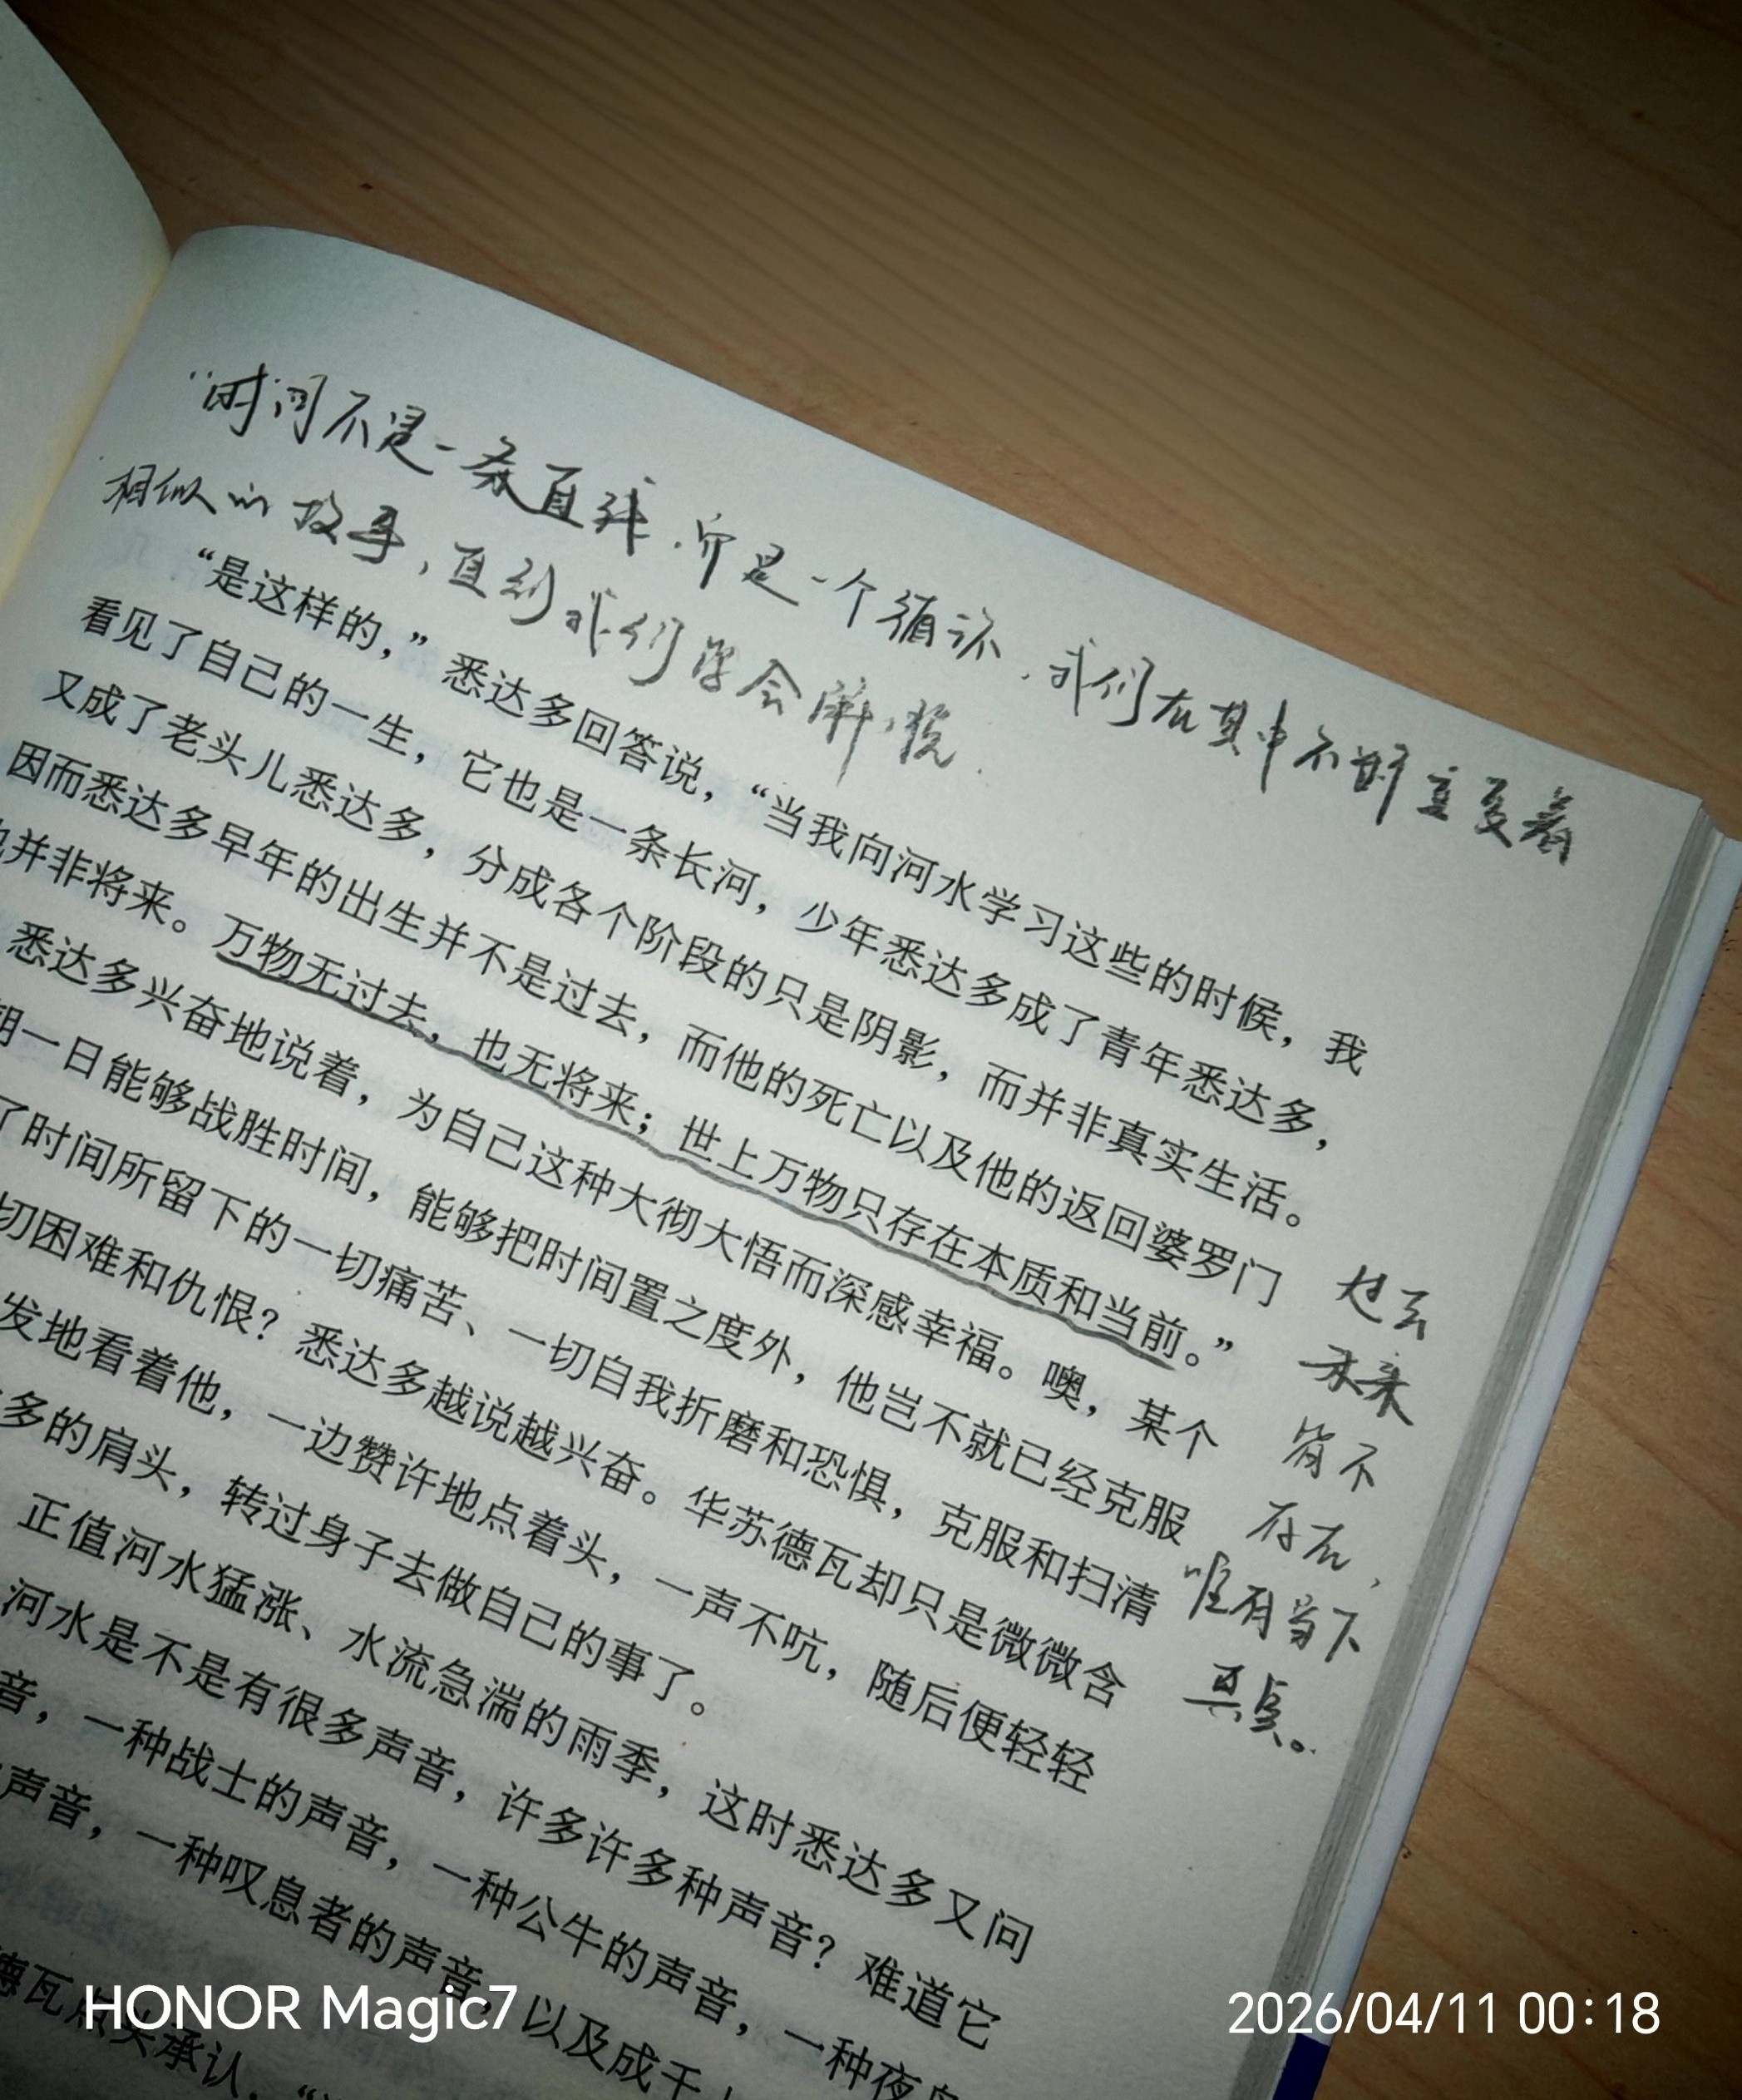 “时间不是一条直线，而是一个循环，我们在其中不断重复着
相似的故事，直到我们学会解脱．
“是这样的，”悉达多回答说，“当我向河水学习这些的时候，我
看见了自己的一生，它也是一条长河，少年悉达多成了青年悉达多，
又成了老头儿悉达多，分成各个阶段的只是阴影，而并非真实生活。
因而悉达多早年的出生并不是过去，而他的死亡以及他的返回婆罗门
并非将来。万物无过去，也无将来；世上万物只存在本质和当前。”
悉达多兴奋地说着，为自己这种大彻大悟而深感幸福。噢，某个
一日能够战胜时间，能够把时间置之度外，他岂不就已经克服
了时间所留下的一切痛苦、一切自我折磨和恐惧，克服和扫清
切困难和仇恨？悉达多越说越兴奋。华苏德瓦却只是微微含
发地看着他，一边赞许地点着头，一声不吭，随后便轻轻
多的肩头，转过身子去做自己的事了。
正值河水猛涨、水流急湍的雨季，这时悉达多又问
河水是不是有很多声音，许多许多种声音？难道它
音，一种战士的声音，一种公牛的声音，一种夜
声音，一种叹息者的声音，以及成千
德瓦点头承认，“
过去
未来
皆不
存在，
唯有当下
真实。
HONOR Magic7
2026/04/11 00:18